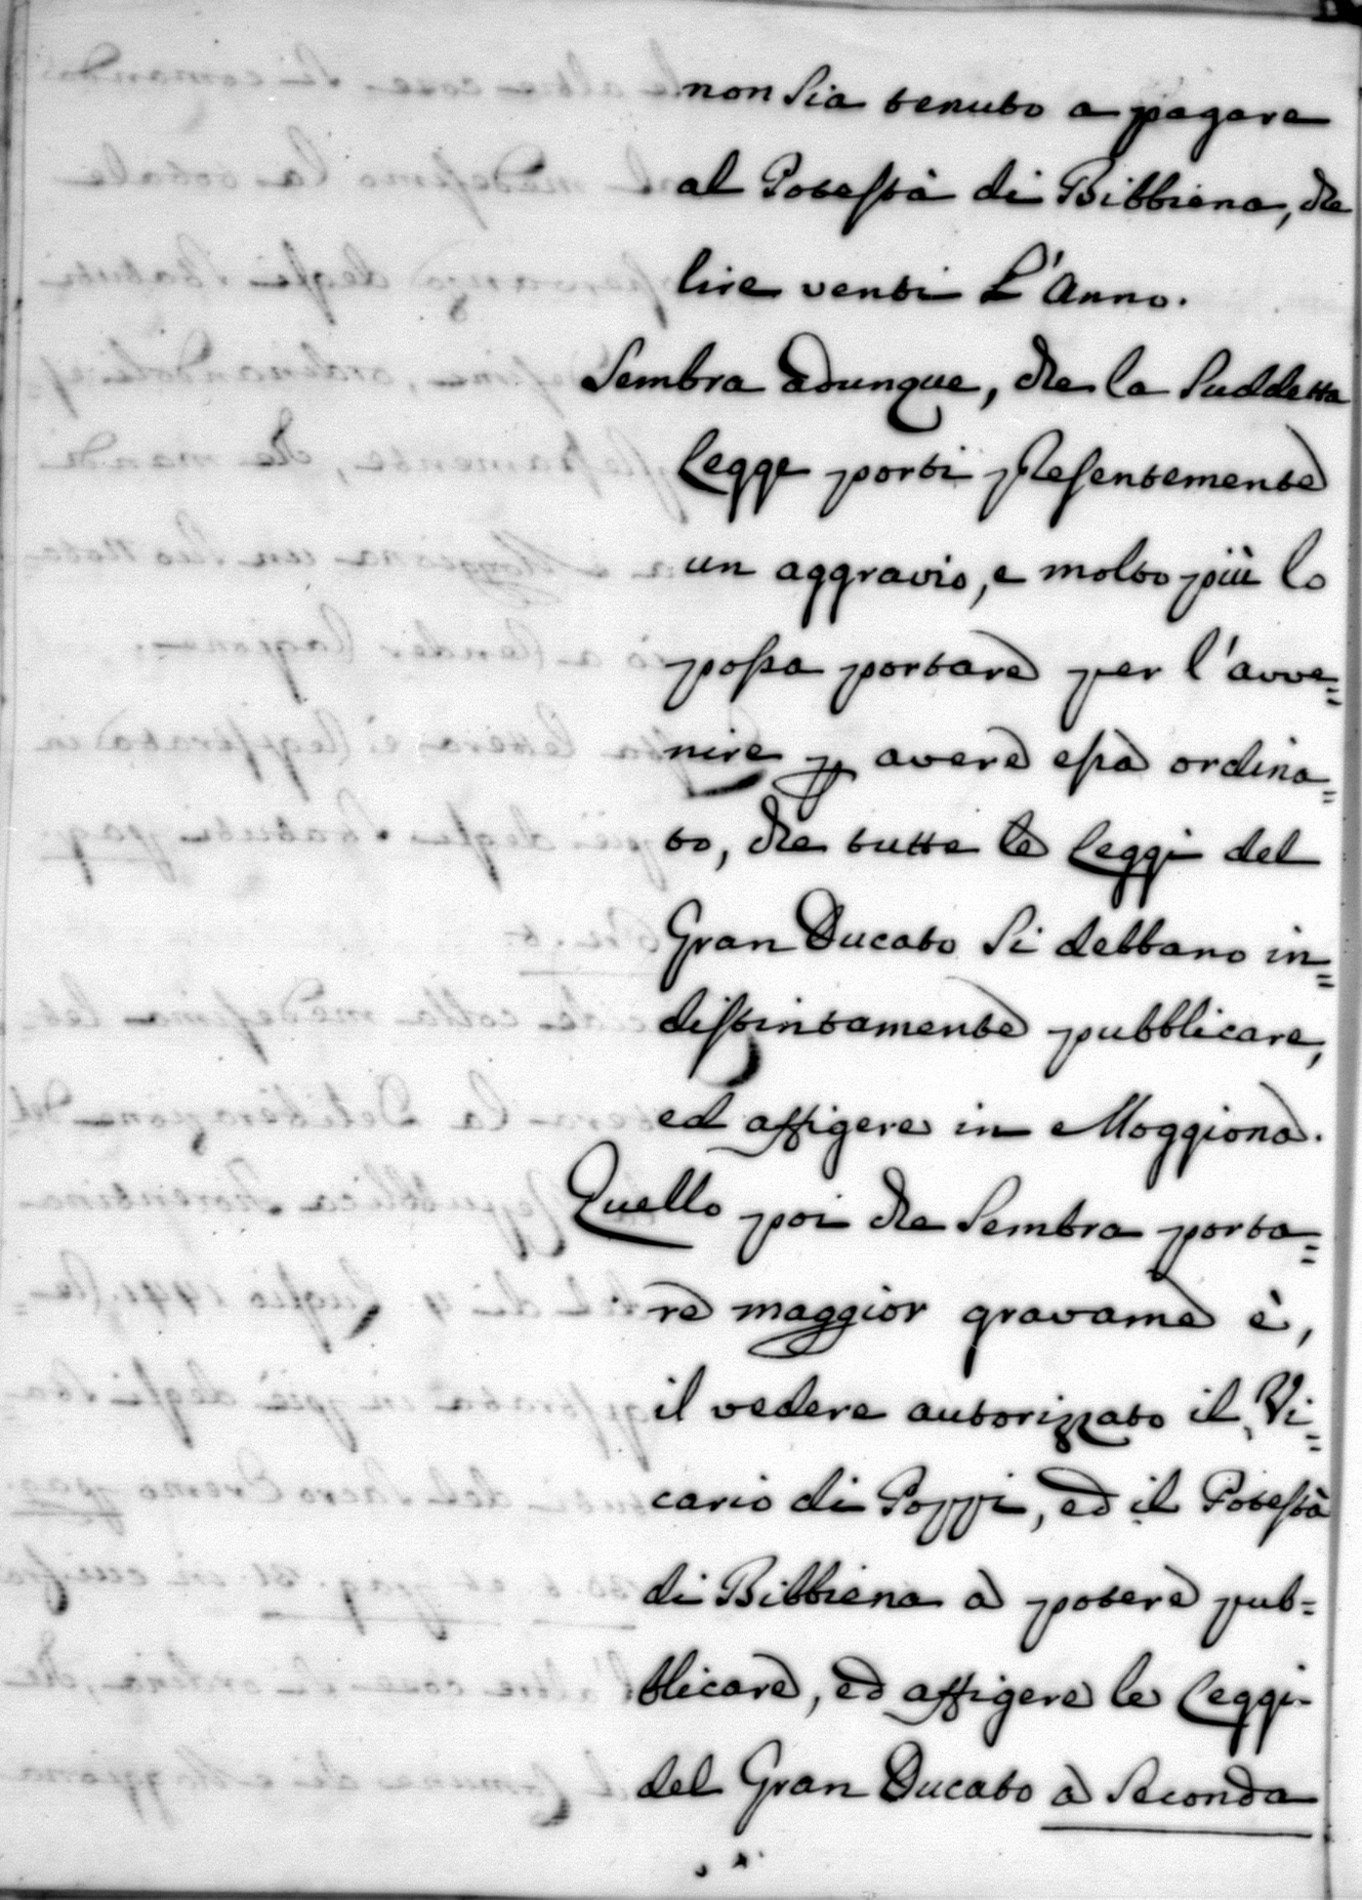 non sia tenuto a pagare
al Potestà di Bibbiena, che
lire venti L'Anno.
Sembra adunque, che la suddetta
Legge porti presentemente
un aggravio, e molto più lo
possa portare per l'avve=
nire p avere essa ordina=
to, che tutte le Leggi del
Gran Ducato si debbano in=
distintamente pubblicare,
ed affigere in Moggiona.
Quello poi che sembra porta=
re maggior gravame è,
il vedere autorizzato il Vi=
cario di Poppi, ed il Potestà
di Bibbiena a potere pub=
blicare, ed affigere le Leggi
del Gran Ducato à Seconda